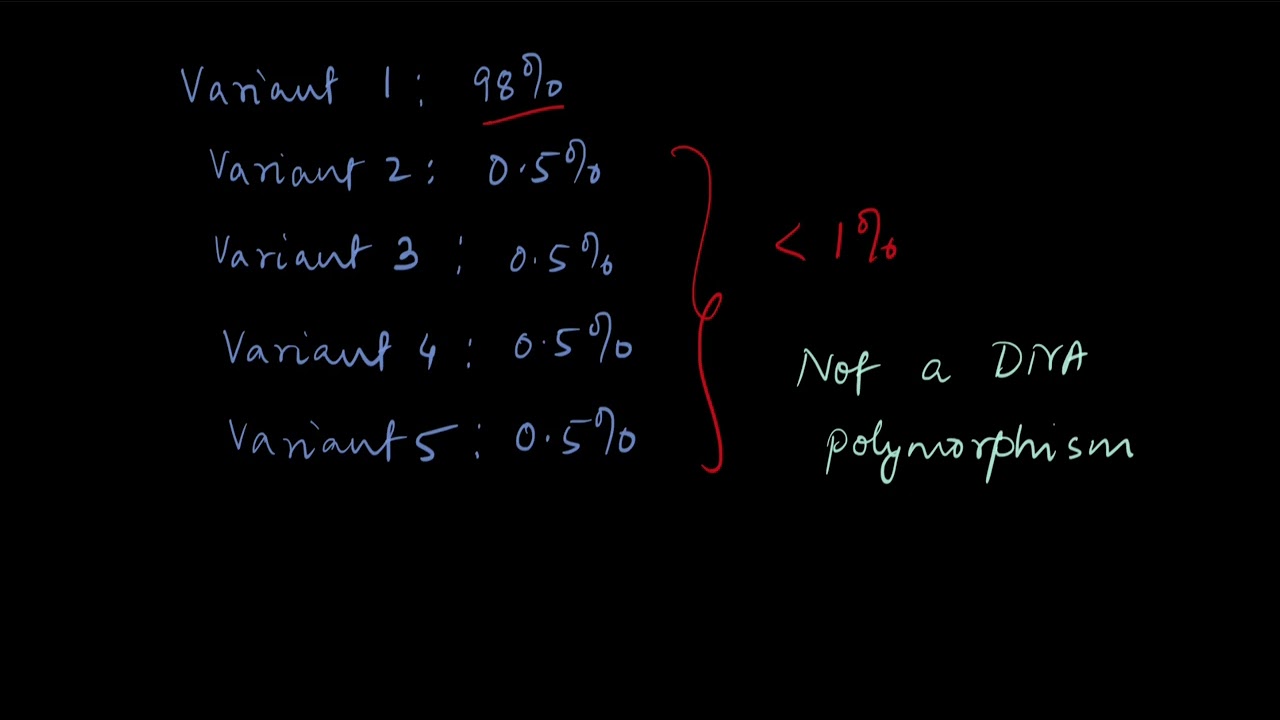 Variant 1 : 98%
Variant 2 : 0.5%
Variant 3 : 0.5%
Variant 4 : 0.5%
Variant 5 : 0.5%
< 1%
Not a DNA
polymorphism